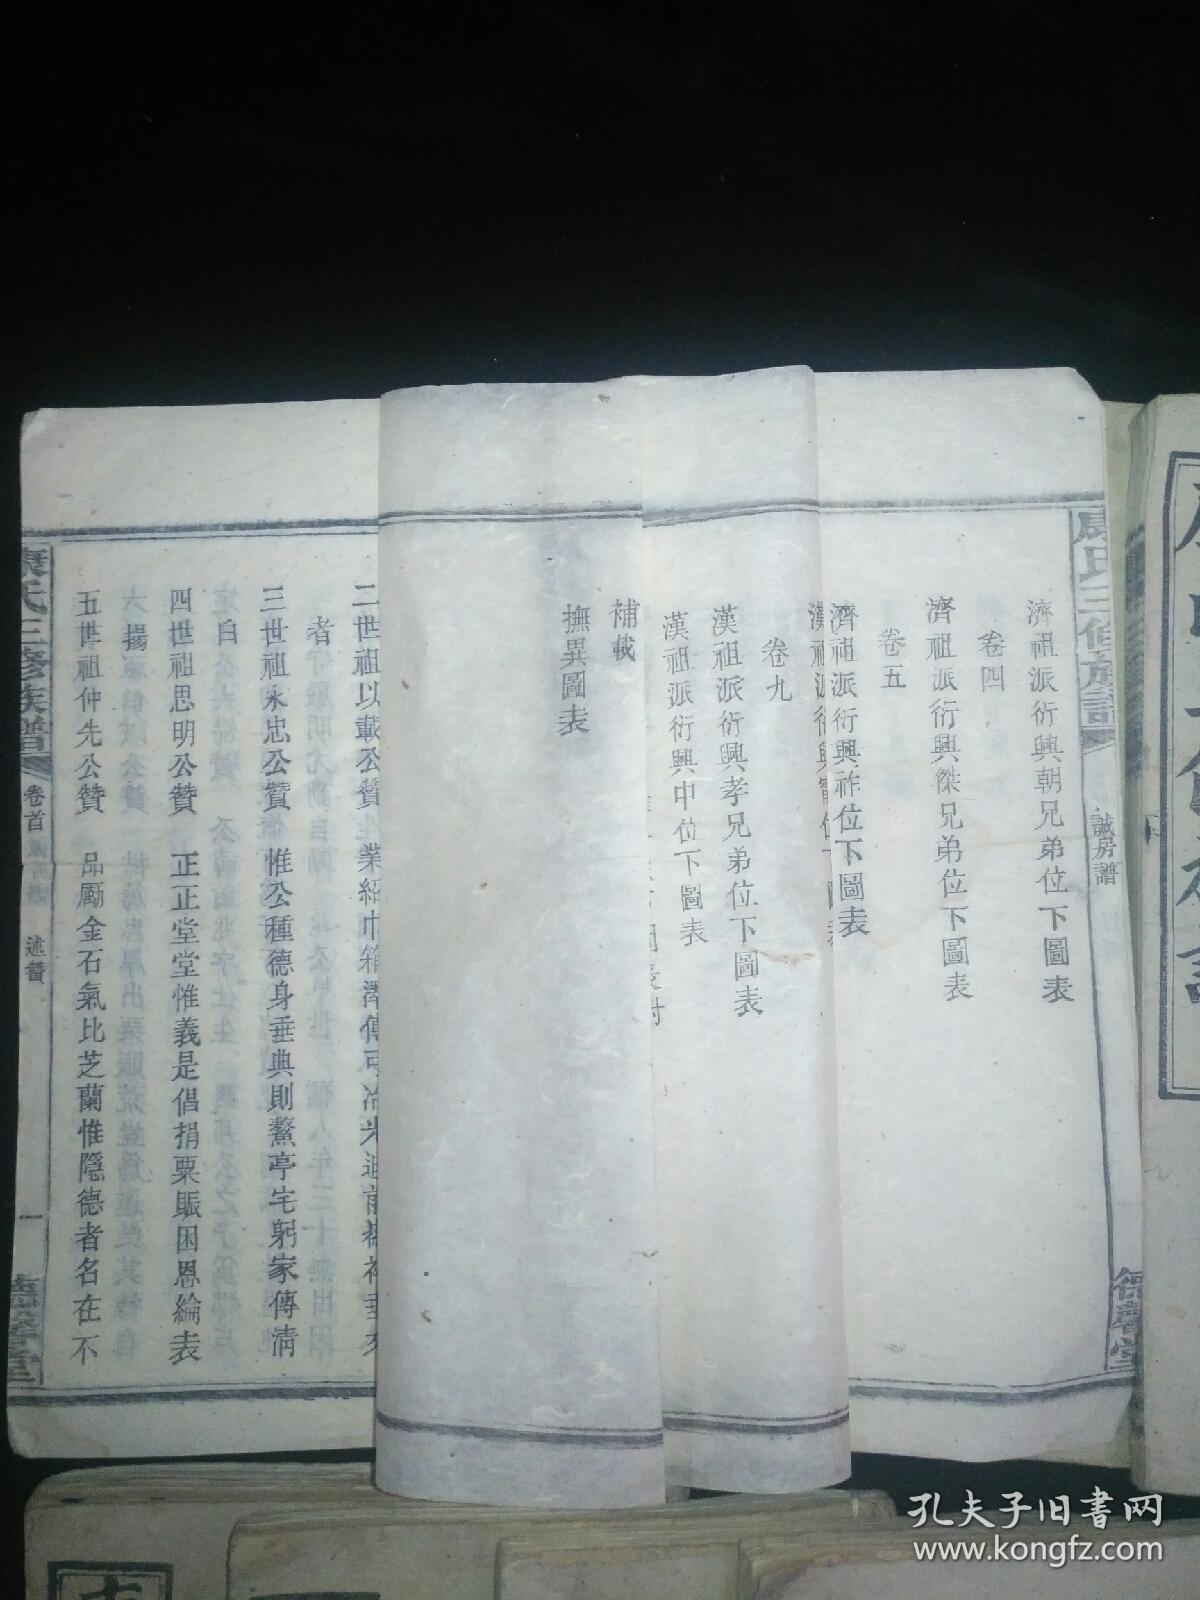 康氏三修族譜
誠房譜
德馨堂
濟祖派衍興朝兄弟位下圖表
卷四
濟祖派衍興傑兄弟位下圖表
卷五
濟祖派衍興祚位下圖表
卷九
漢祖派衍興孝兄弟位下圖表
漢祖派衍興中位下圖表
補載
撫異圖表
二世祖以載公贊
業紹巾箱
三世祖永忠公贊 惟公種德身垂典則鰲亭宅躬家傳清
四世祖思明公贊 正正堂堂惟義是倡捐粟賑困恩綸表
揚
五世祖仲先公贊 品勵金石氣比芝蘭惟隱德者名在不
康氏三修族譜
卷首
述贊
一
德馨堂
孔夫子旧書网
www.kongfz.com